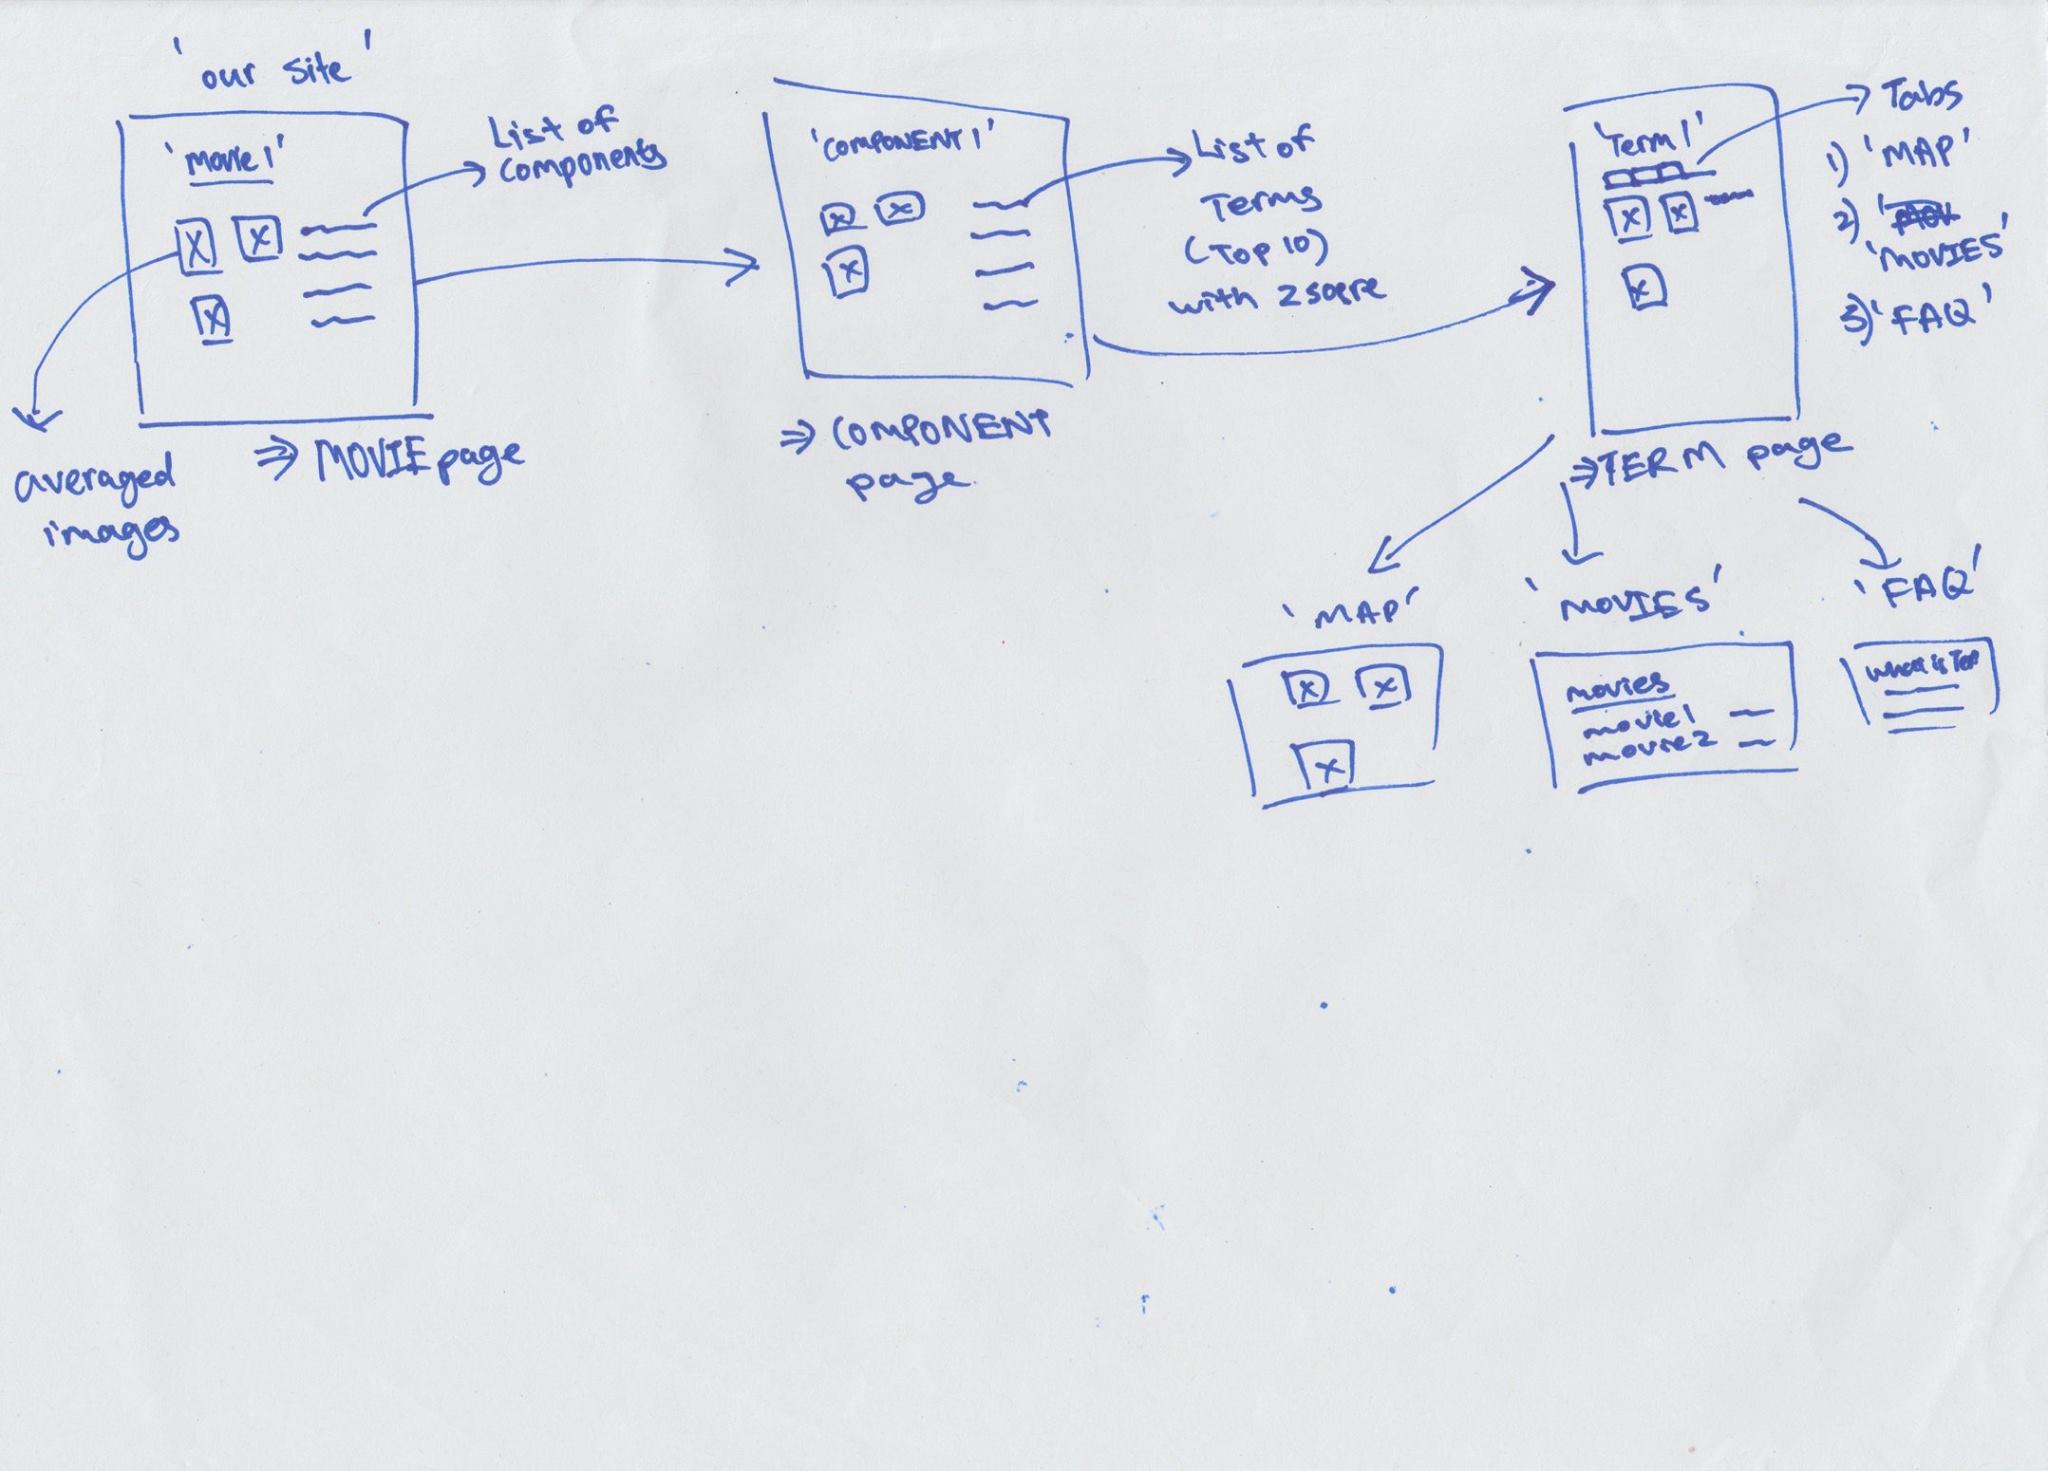 'our site'
'movie 1'
List of
components
averaged
images
⇒ MOVIE page
'COMPONENT 1'
List of
Terms
(Top 10)
with zsocre
⇒ COMPONENT
page
'Term 1'
Tabs
1) 'MAP'
2) '
'MOVIES'
3) 'FAQ'
⇒ TERM page
'MAP'
'MOVIES'
movies
movie1
movie2
'FAQ'
what is